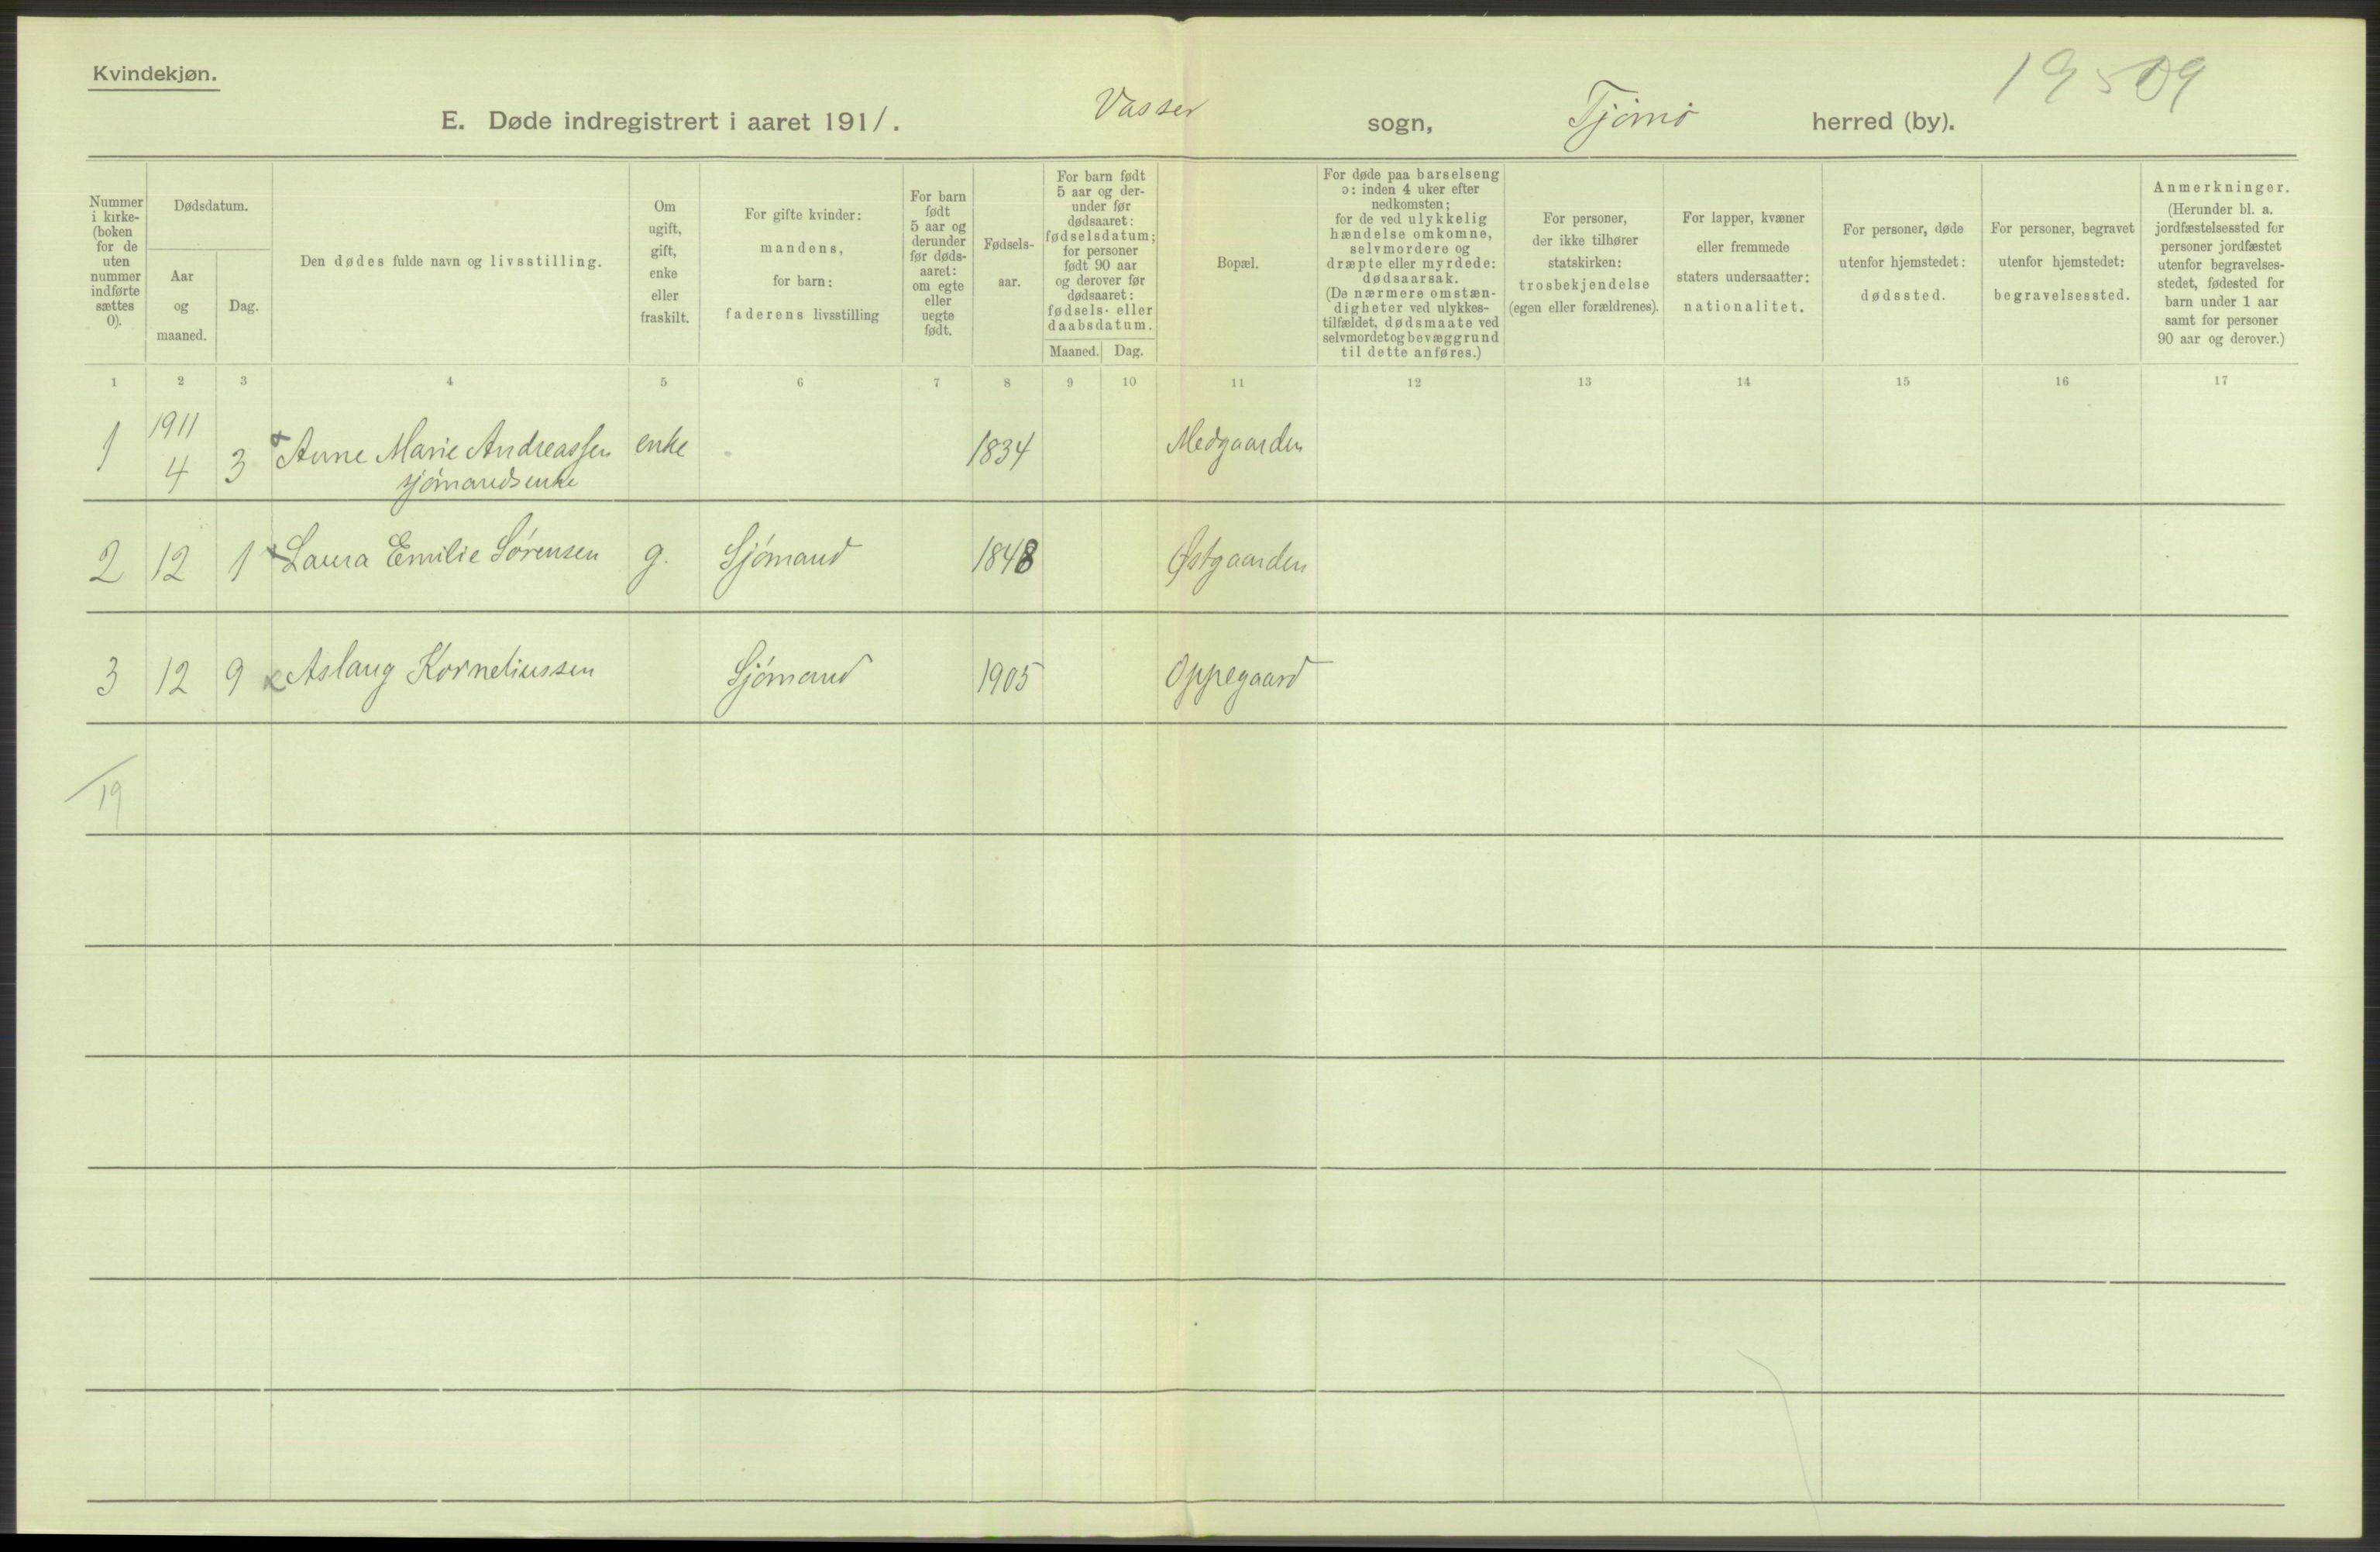 Kvindekjøn.
E. Døde indregistrert i aaret 1911. Vasser sogn, Tjömö herred (by).
19 509
Nummer i kirke- (boken for de uten nummer indførte sættes 0).
Dødsdatum.
Aar og maaned.
Dag.
Den dødes fulde navn og livsstilling.
Om ugift, gift, enke eller fraskilt.
For gifte kvinder: mandens, for barn: faderens livsstilling
For barn født 5 aar og derunder før døds- aaret: om egte eller uegte født.
Fødsels- aar.
For barn født 5 aar og der- under før dødsaaret: fødselsdatum; for personer født 90 aar og derover før dødsaaret: fødsels- eller daabsdatum.
Maaned. Dag.
Bopæl.
For døde paa barselseng ɔ: inden 4 uker efter nedkomsten; for de ved ulykkelig hændelse omkomne, selvmordere og dræpte eller myrdede: dødsaarsak. (De nærmere omstæn- digheter ved ulykkes- tilfældet, dødsmaate ved selvmordet og bevæggrund til dette anføres.)
For personer, der ikke tilhører statskirken: trosbekjendelse (egen eller forældrenes).
For lapper, kvæner eller fremmede staters undersaatter: nationalitet.
For personer, døde utenfor hjemstedet: dødssted.
For personer, begravet utenfor hjemstedet: begravelsessted.
Anmerkninger. (Herunder bl. a. jordfæstelsessted for personer jordfæstet utenfor begravelses- stedet, fødested for barn under 1 aar samt for personer 90 aar og derover.)
1 2 3 4 5 6 7 8 9 10 11 12 13 14 15 16 17
1911
1 4 3 Anne Marie Andreassen enke 1834 Medgaarden
sjømandsenke
2 12 1 Laura Emilie Sórensen g. Sjómand 1848 Østgaarden
3 12 9 Aslaug Korneliussen Sjómand 1905 Oppegaard
19